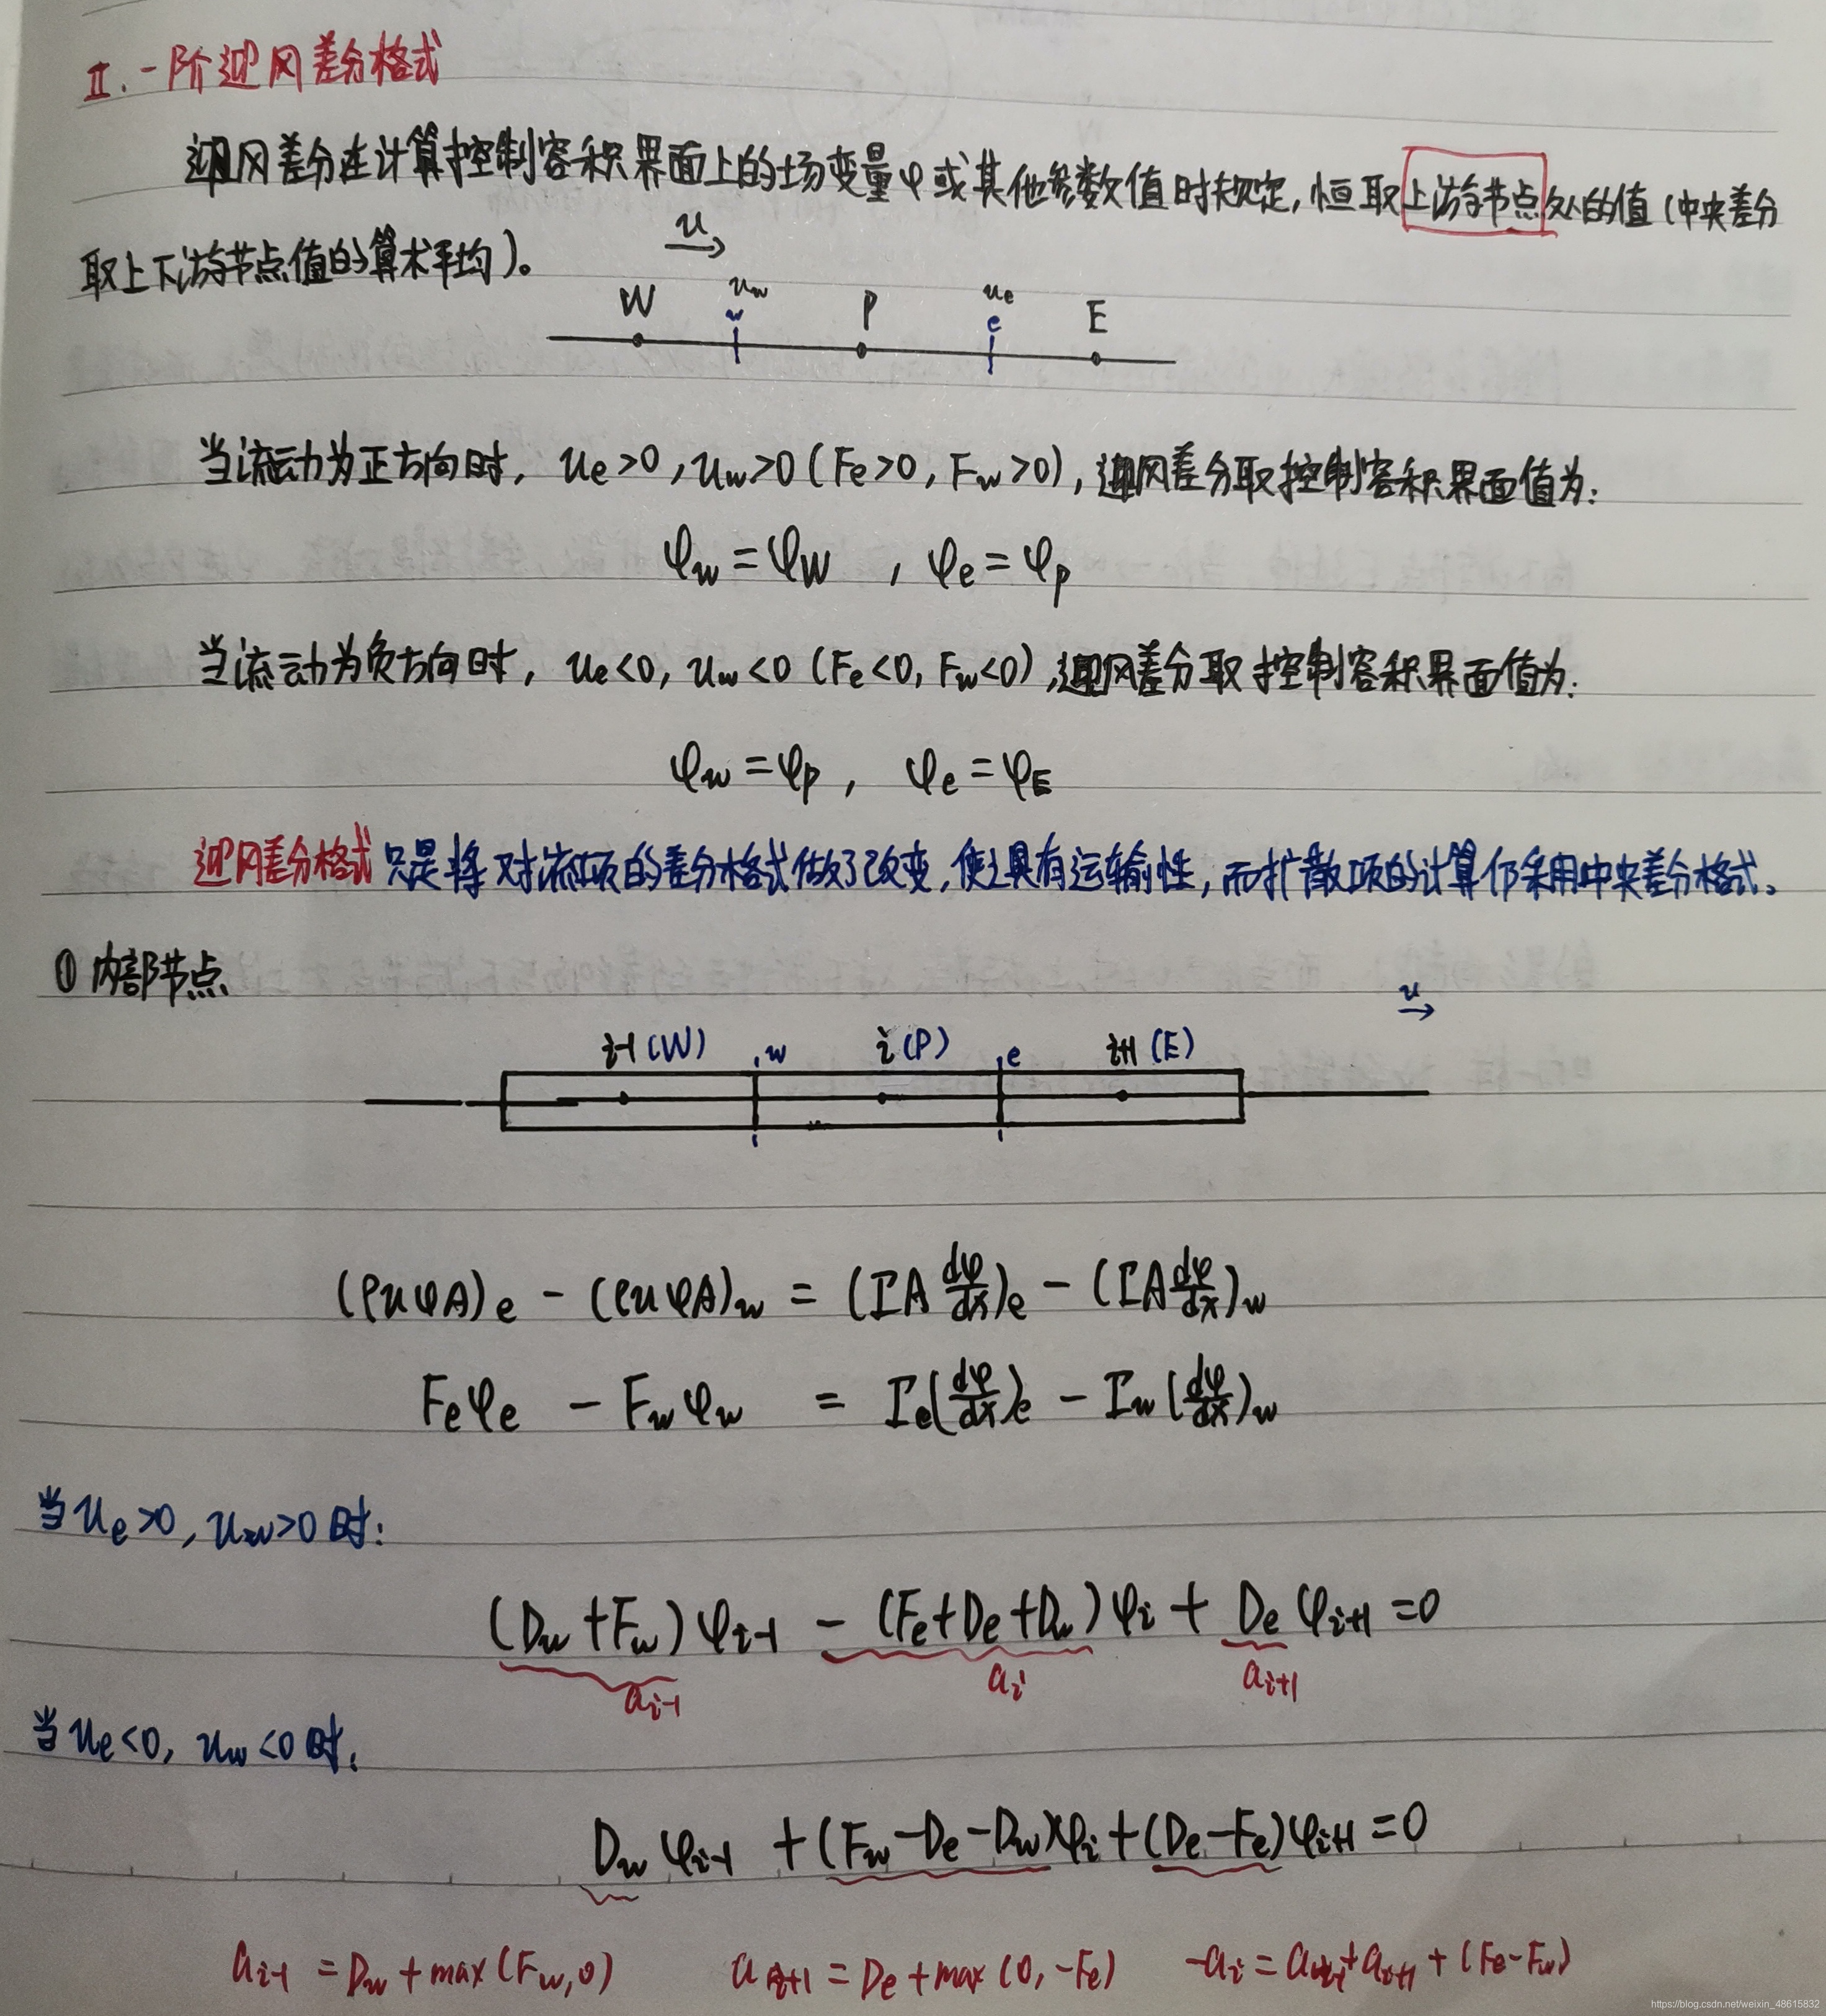 II. 一阶迎风差分格式
迎风差分在计算控制容积界面上的场变量φ或其他参数值时规定，恒取上游节点处的值（中央差分
取上下游节点值的算术平均）。
u →
W u_w w P u_e e E
当流动为正方向时，u_e>0，u_w>0（F_e>0，F_w>0），迎风差分取控制容积界面值为：
φ_w=φ_W，φ_e=φ_p
当流动为负方向时，u_e<0，u_w<0（F_e<0，F_w<0），迎风差分取控制容积界面值为：
φ_w=φ_p，φ_e=φ_E
迎风差分格式只是将对流项的差分格式做了改变，使之具有运输性，而扩散项的计算仍采用中央差分格式。
① 内部节点
u →
i-1(W) w i(P) e i+1(E)
(ρuφA)_e - (ρuφA)_w = (ΓA dφ/dx)_e - (ΓA dφ/dx)_w
F_eφ_e - F_wφ_w = Γ_e(dφ/dx)_e - Γ_w(dφ/dx)_w
当u_e>0，u_w>0时：
(D_w+F_w)φ_{i-1} - (F_e+D_e+D_w)φ_i + D_eφ_{i+1}=0
a_{i-1} a_i a_{i+1}
当u_e<0，u_w<0时：
D_wφ_{i-1} + (F_w-D_e-D_w)φ_i + (D_e-F_e)φ_{i+1}=0
a_{i-1} = D_w + max(F_w,0) a_{i+1} = D_e + max(0,-F_e) -a_i = a_{i-1} + a_{i+1} + (F_e-F_w)
https://blog.csdn.net/weixin_48615832